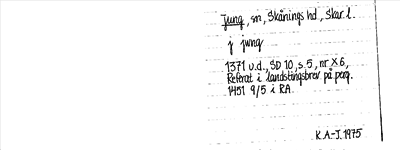 Jung, sn, Skånings hd, Skar. l.
j jung
1371 u.d., SD 10, s 5, nr X 6,
Referat i landstingsbrev på perg.
1451 9/5 i RA.
K.A-J. 1975